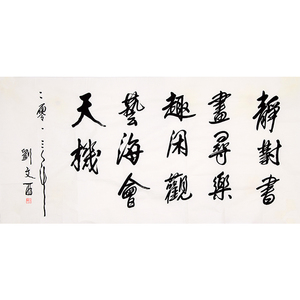 靜對書
畫尋樂
趣闲觀
藝海會
天機
二零一三年
劉文酉